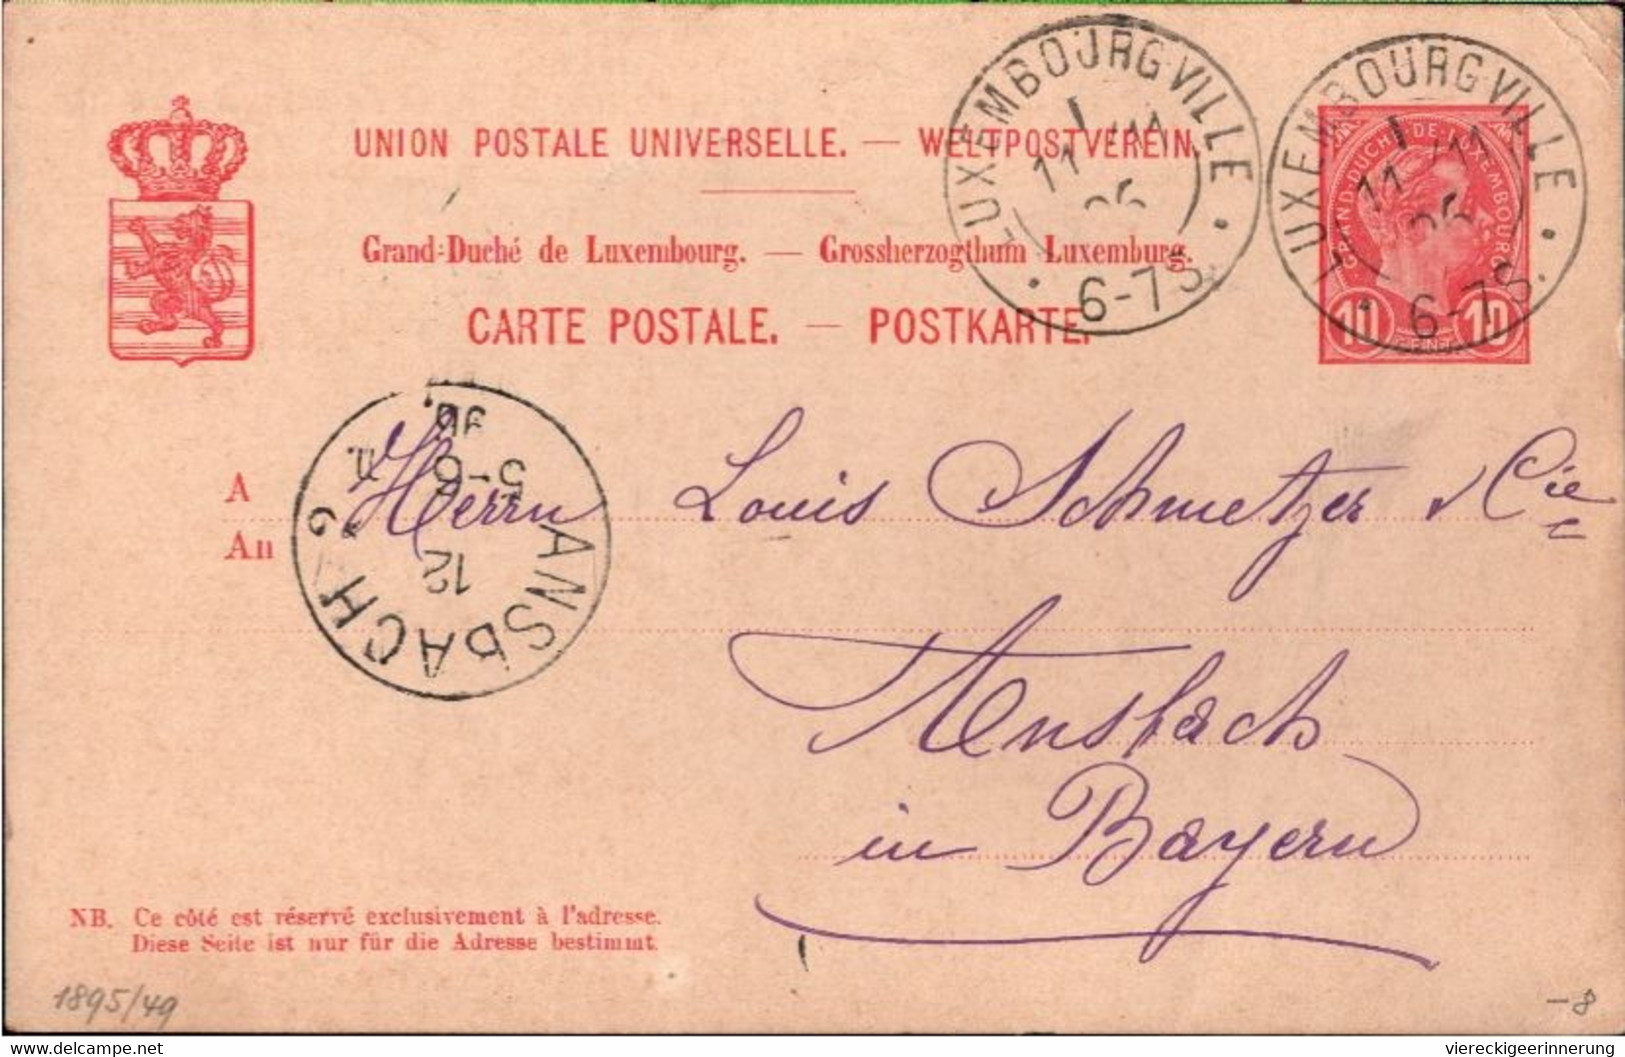 UNION POSTALE UNIVERSELLE. — WELTPOSTVEREIN.
Grand-Duché de Luxembourg. — Grossherzogthum Luxemburg.
CARTE POSTALE. — POSTKARTE.
LUXEMBOURG VILLE
11
6-7 S.
LUXEMBOURG VILLE
11
6-7 S.
GRAND-DUCHÉ DE LUXEMBOURG
10 10
ANSBACH
12
5-6
A
An
Herrn Louis Schmetzer & Cie
Ansbach
in Bayern
NB. Ce côté est réservé exclusivement à l'adresse.
Diese Seite ist nur für die Adresse bestimmt.
1895/49
-8
delcampe.net
viereckigeerinnerung